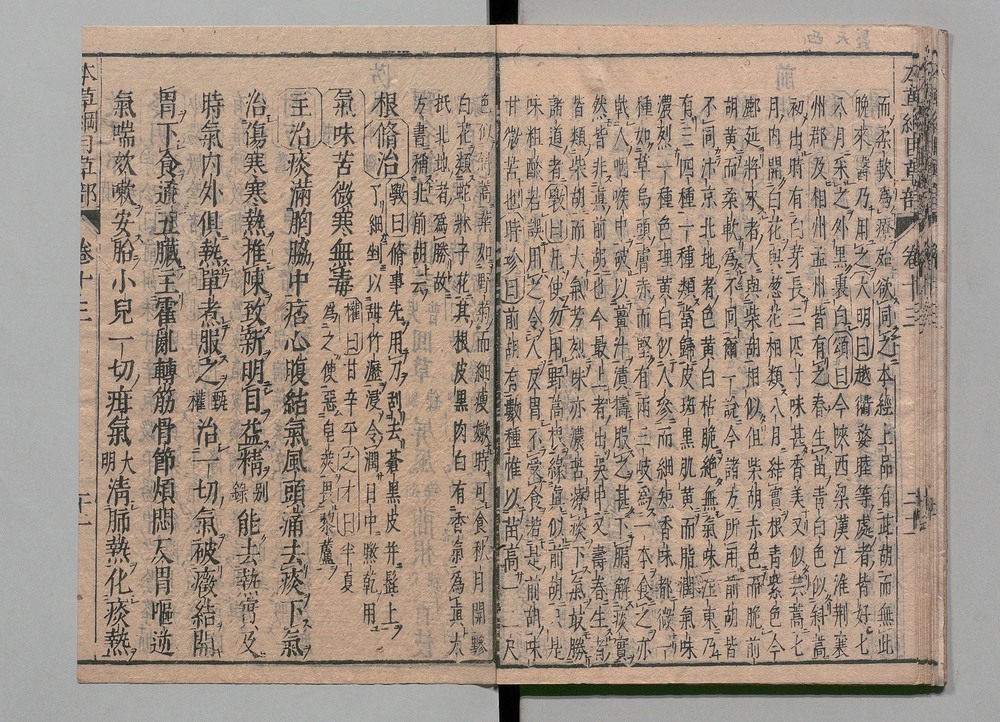 而柔軟爲療殆欲同之本經上品有此胡而無此
晩來醫乃用之大明曰越衢婺睦等處者皆好七
八月采之外黑裏白頌曰今陝西梁漢江淮荆襄
州郡及相州孟州皆有之春生苗青白色似斜蒿
初出時有白芽長三四寸味甚香美又似芸蒿七
月内開白花與葱花相類八月結實根青紫色今
鄜延將來者大與柴胡相似但柴胡赤色而脆前
胡黃而柔軟爲不同爾一説今諸方所用前胡皆
不同汴京北地者色黃白枯脆絶無氣味江東乃
有三四種一種類當歸皮斑黑肌黃而脂潤氣味
濃烈一種色理黃白似人參而細短香味都微一
種如草烏頭膚赤而堅有兩三歧爲一本食之亦
戟人咽喉中破以薑汁漬搗服之甚下膈解痰實
然皆非眞前胡也今最上者出吳中又壽春生者
皆類柴胡而大氣芳烈味亦濃苦療痰下氣最勝
諸道者斅曰凡使勿用野蒿根緣眞似前胡只是
味粗酸若誤用之令人反胃不受食若是前胡味
甘微苦也時珍曰前胡有數種惟以苗高一二尺
色似斜蒿葉如野菊而細瘦嫩時可食秋月開黲
白花類蛇牀子花其根皮黑肉白有香氣爲眞大
抵北地者爲勝故
方書稱北前胡云
根修治斅曰修事先用刀刮去蒼黑皮并髭土
了細剉以甜竹瀝浸令潤日中晒乾用
氣味苦微寒無毒權曰甘辛平之才曰半夏
爲之使惡皂莢畏藜蘆
主治痰滿胸脇中痞心腹結氣風頭痛去痰下氣
治傷寒寒熱推陳致新明目益精別錄能去熱實及
時氣内外俱熱單煮服之甄權治一切氣破癥結開
胃下食通五臟主霍亂轉筋骨節煩悶反胃嘔逆
氣喘欬嗽安胎小兒一切疳氣大明清肺熱化痰熱
本草綱目草部 卷十三